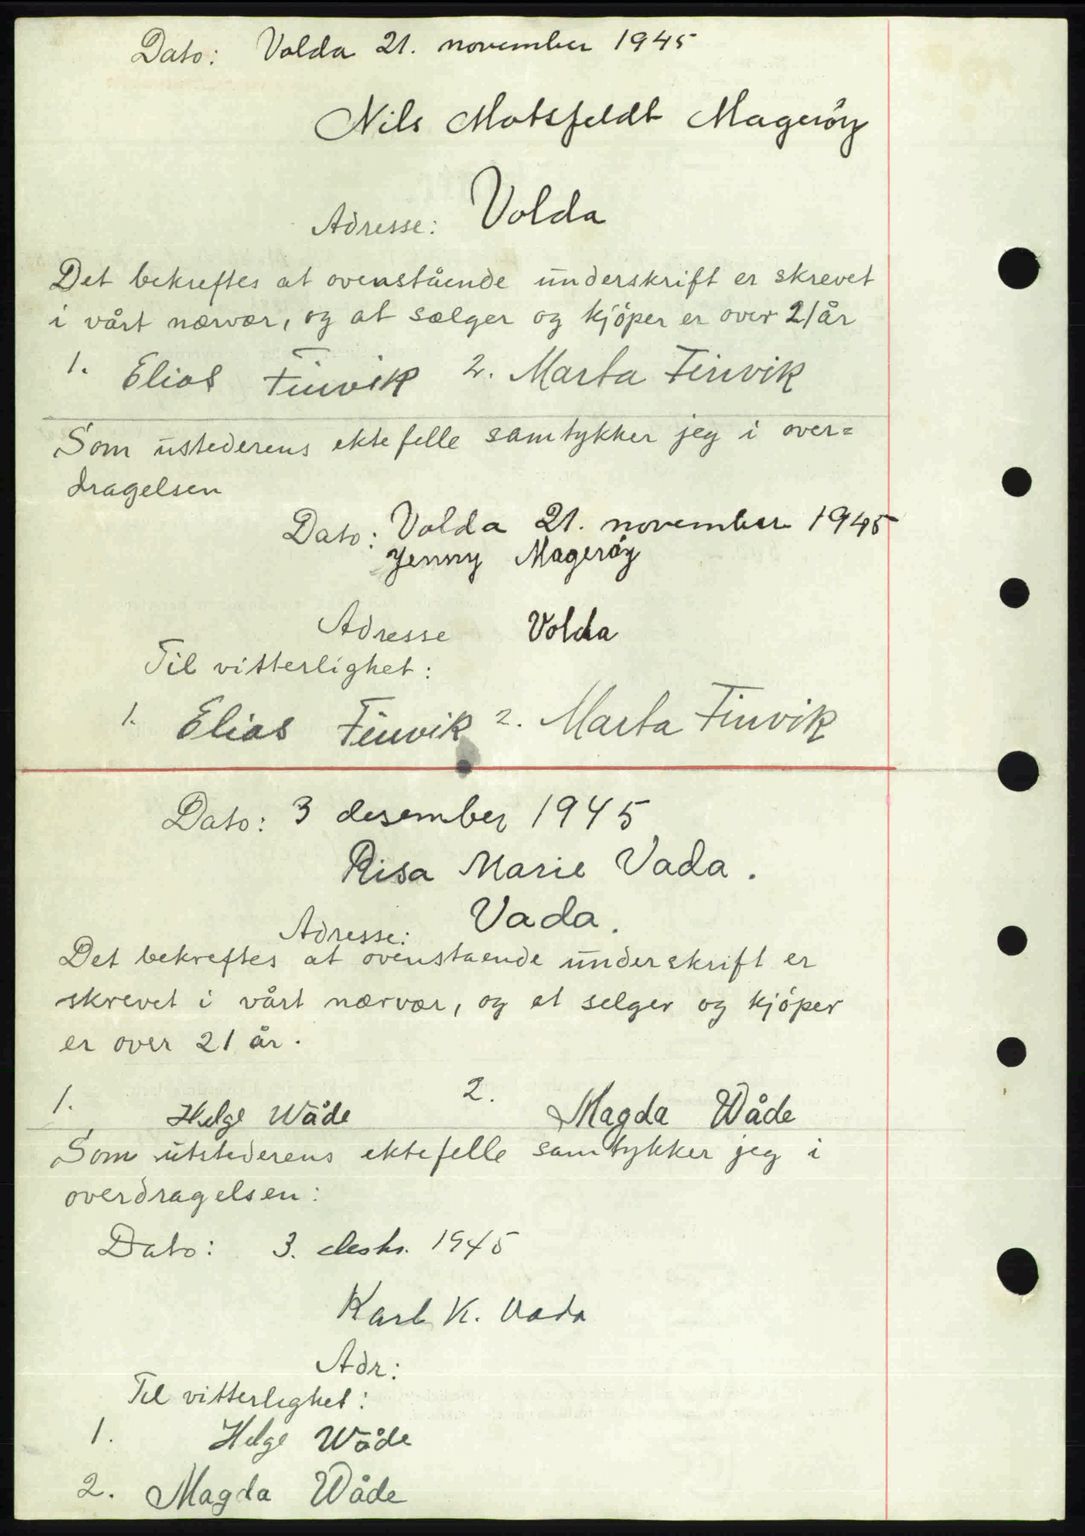 Dato: Volda 21. november 1945
Nils Motsfeldt Magerøy
Adresse: Volda
Det bekreftes at ovenstående underskrift er skrevet
i vårt nærvær, og at sælger og kjöper er over 21 år
1. Elias Finvik 2. Marta Finvik
Som ustederens ektefelle samtykker jeg i over=
dragelsen
Dato: Volda 21. november 1945
Jenny Magerøy
Adresse Volda
Til vitterlighet:
1. Elias Finvik 2. Marta Finvik
Dato: 3 desember 1945
Risa Marie Vada.
Adresse: Vada.
Det bekreftes at ovenstaende underskrift er
skrevet i vårt nærvær, og at selger og kjöper
er over 21 år.
1. Helge Wåde 2. Magda Wåde
Som utstederens ektefelle samtykker jeg i
overdragelsen:
Dato: 3. desbr. 1945
Karl K. Vada
Adr:
Til vitterlighet:
1. Helge Wåde
2. Magda Wåde